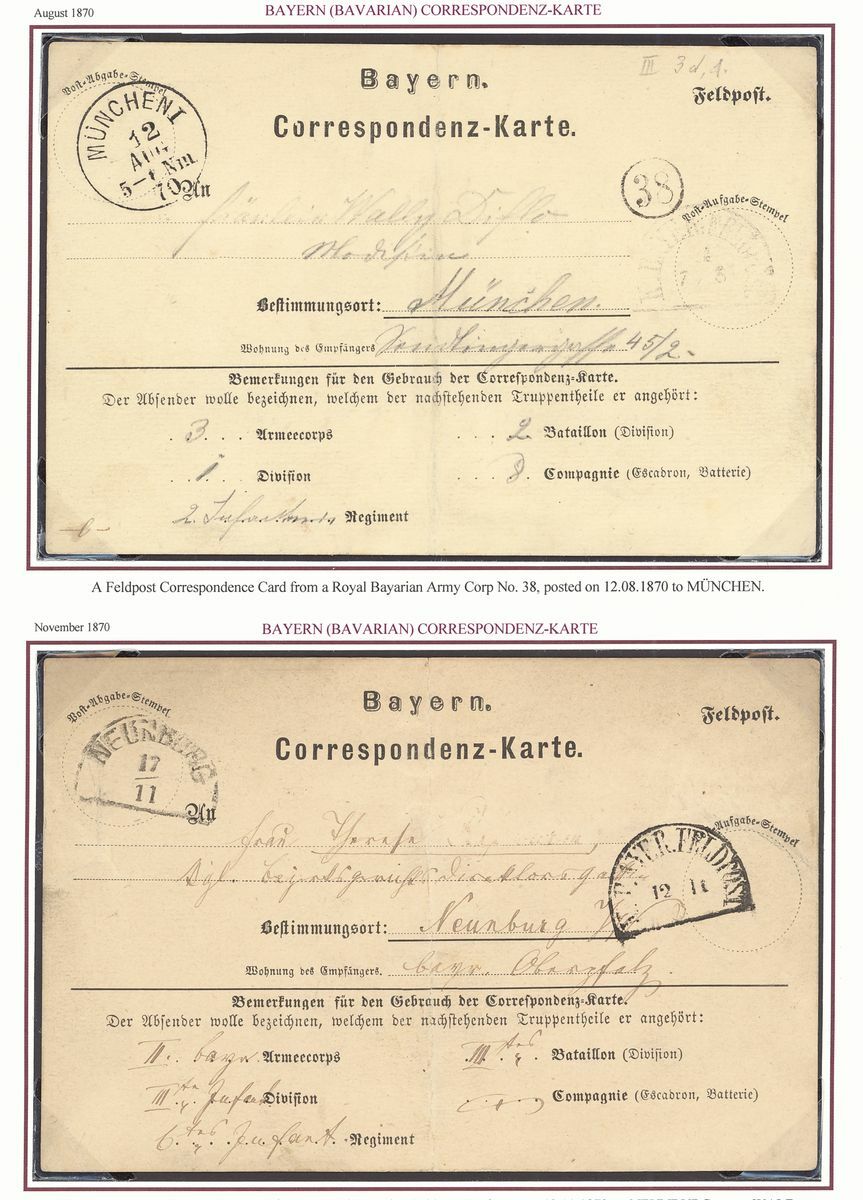 August 1870 BAYERN (BAVARIAN) CORRESPONDENZ-KARTE
III 3d,1.
Post-Abgabe-Stempel
Bayern.
Feldpost.
Correspondenz-Karte.
MÜNCHEN I
12
AUG
Nm
70
An
38
Post-Aufgabe-Stempel
Fräulein Wally
Modistin
Bestimmungsort: München.
Wohnung des Empfängers Sendlingergasse 45/2.
Bemerkungen für den Gebrauch der Correspondenz-Karte.
Der Absender wolle bezeichnen, welchem der nachstehenden Truppentheile er angehört:
3 Armeecorps 2. Bataillon (Division)
1 Division 8. Compagnie (Escadron, Batterie)
2. Infanterie Regiment
A Feldpost Correspondence Card from a Royal Bayarian Army Corp No. 38, posted on 12.08.1870 to MÜNCHEN.
November 1870 BAYERN (BAVARIAN) CORRESPONDENZ-KARTE
Post-Abgabe-Stempel
Bayern.
Feldpost.
Correspondenz-Karte.
NEUNBURG
17
11
An
Aufgabe-Stempel
BAYER. FELDPOST
12 11
Frau Therese
Kgl. Bezirksgerichts direktors
Bestimmungsort: Neunburg
Wohnung des Empfängers. bayr. Oberpfalz.
Bemerkungen für den Gebrauch der Correspondenz-Karte.
Der Absender wolle bezeichnen, welchem der nachstehenden Truppentheile er angehört:
II. bayr. Armeecorps III.tes Bataillon (Division)
III.te Infant. Division Compagnie (Escadron, Batterie)
6.tes Infant. Regiment